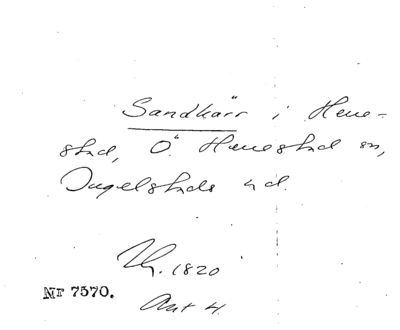 Sandkärr i Hene-
stad, Ö. Henestad sn,
Ingelstads hd.
1820
Nr 7570.
Akt 4.